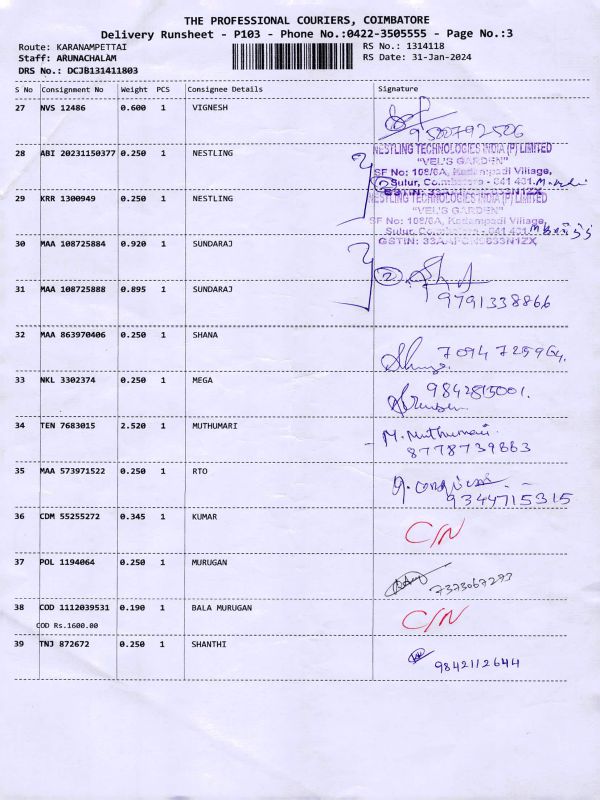 THE PROFESSIONAL COURIERS, COIMBATORE
Delivery Runsheet - P103 - Phone No.:0422-3505555 - Page No.:3
Route: KARANAMPETTAI RS No.: 1314118
Staff: ARUNACHALAM RS Date: 31-Jan-2024
DRS No.: DCJB131411803
S No Consignment No Weight PCS Consignee Details Signature
27 NVS 12486 0.600 1 VIGNESH
9500792506
28 ABI 20231150377 0.250 1 NESTLING
NESTLING TECHNOLOGIES INDIA (P) LIMITED
"VEL'S GARDEN"
SF No: 108/6A, Kadampadi Village,
2 Sulur, Coimbatore - 641 401.
29 KRR 1300949 0.250 1 NESTLING
NESTLING TECHNOLOGIES INDIA (P) LIMITED
"VEL'S GARDEN"
SF No: 108/6A, Kadampadi Village,
Sulur, Coimbatore - 641 401.
30 MAA 108725884 0.920 1 SUNDARAJ
2
31 MAA 108725888 0.895 1 SUNDARAJ
9791338866
32 MAA 863970406 0.250 1 SHANA
7094725964.
33 NKL 3302374 0.250 1 MEGA
9842815001.
34 TEN 7683015 2.520 1 MUTHUMARI
M. Muthumari
8778739863
35 MAA 573971522 0.250 1 RTO
9344715315
36 CDM 55255272 0.345 1 KUMAR C/N
37 POL 1194064 0.250 1 MURUGAN
7373067293
38 COD 1112039531 0.190 1 BALA MURUGAN C/N
COD Rs.1600.00
39 TNJ 872672 0.250 1 SHANTHI
9842112644